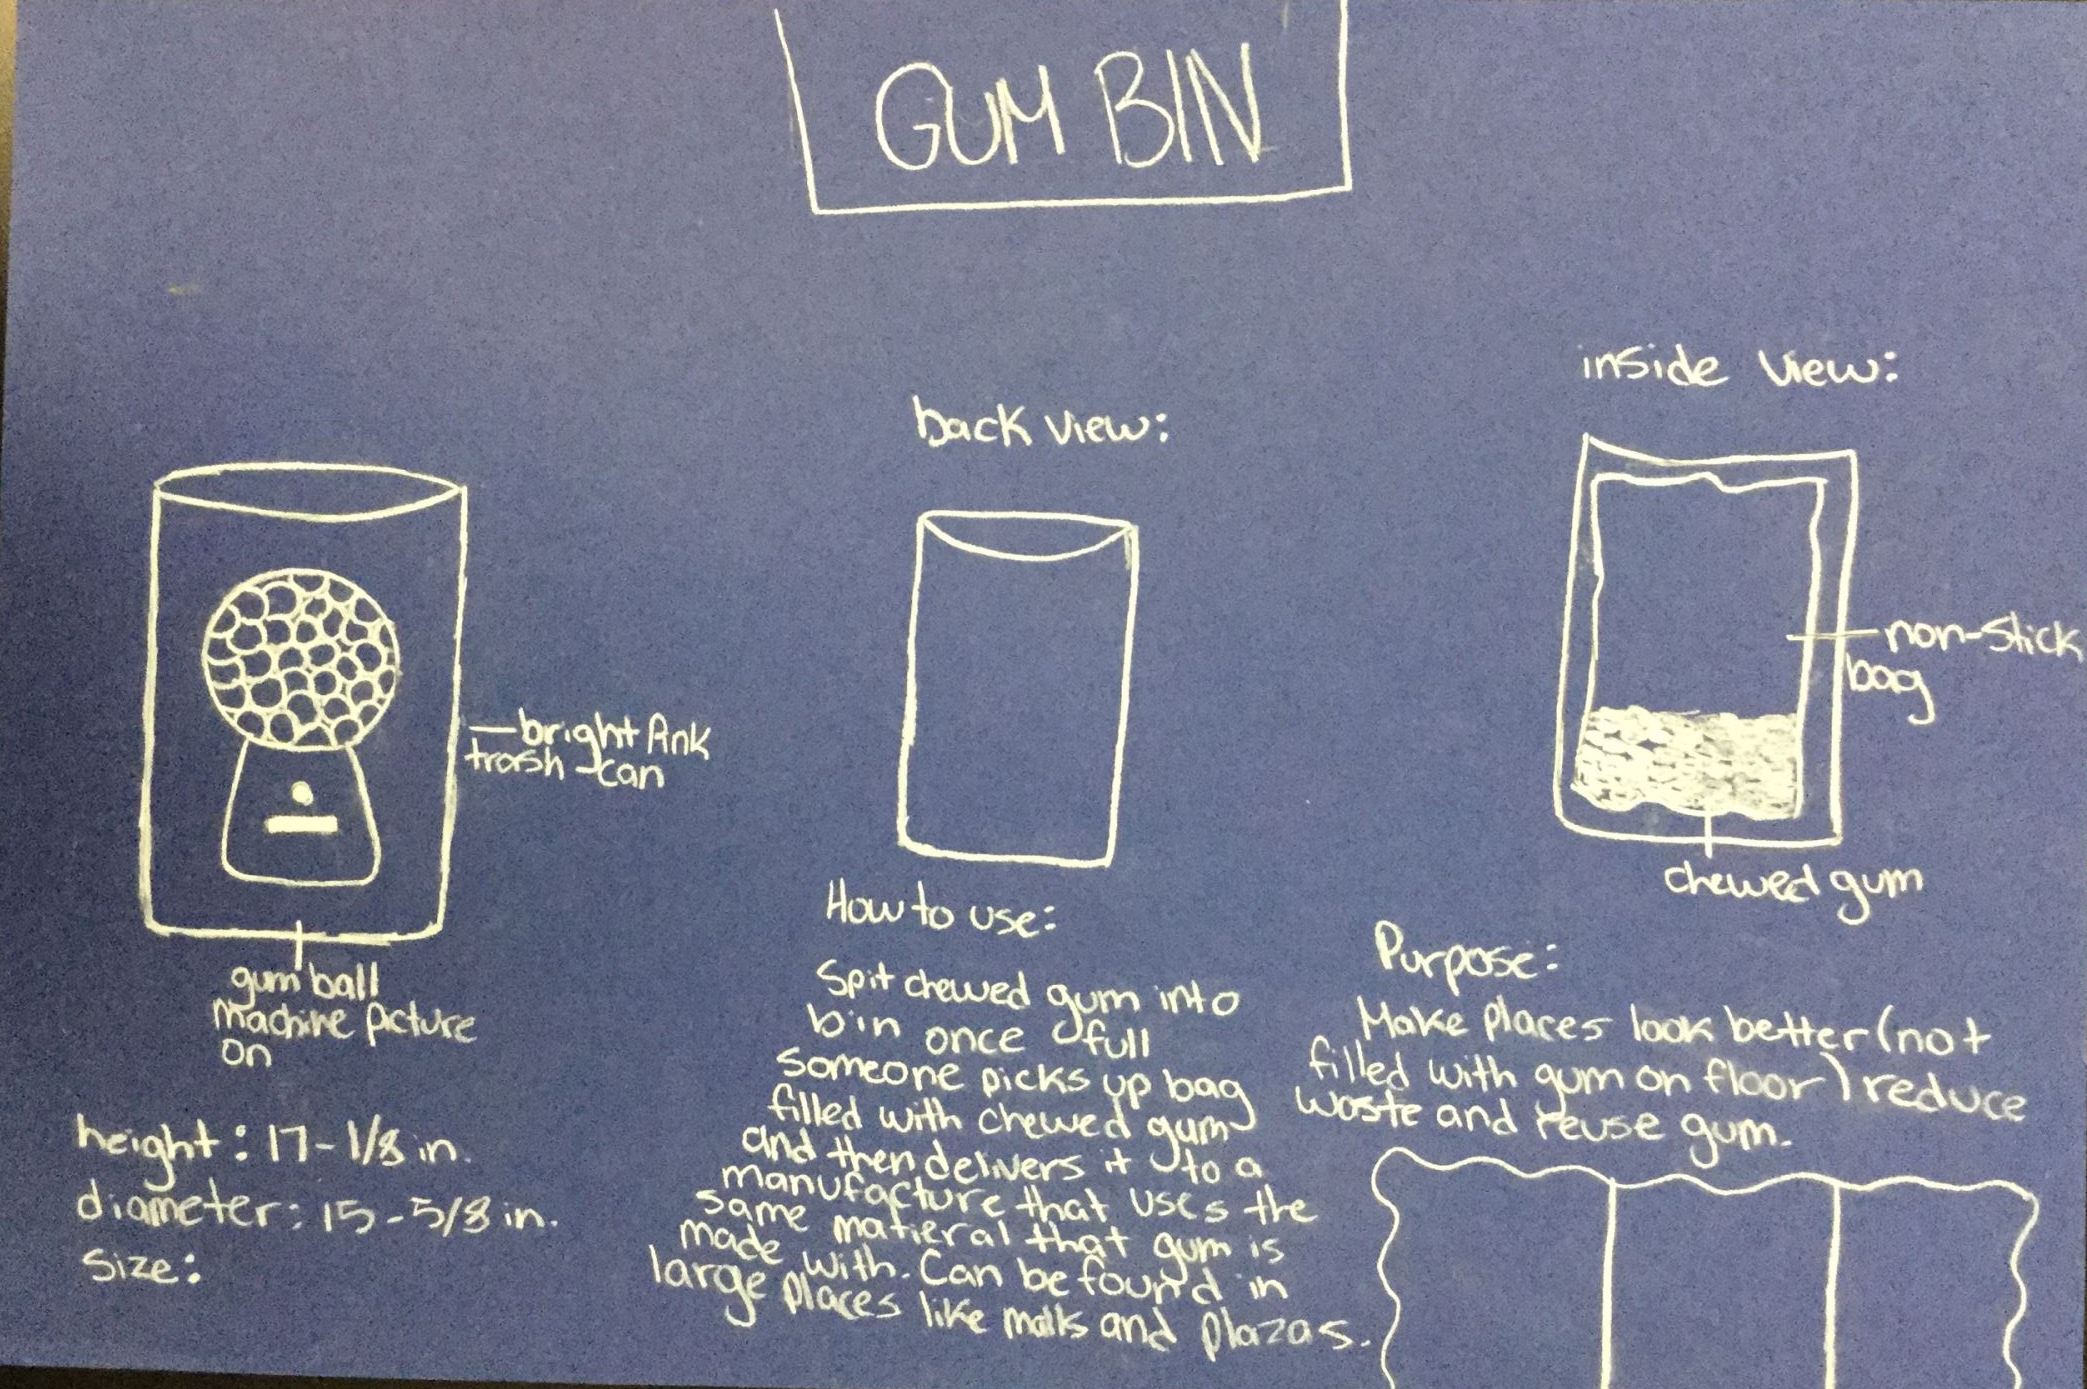 GUM BIN
inside view:
back view:
non-stick
bag
bright Pink
trash-can
chewed gum
gum ball
machine picture
on
How to use:
Spit chewed gum into
bin once full
someone picks up bag
filled with chewed gum
and then delivers it to a
manufacture that uses the
same matieral that gum is
made with. Can be found in
large places like malls and plazas.
Purpose:
Make places look better (not
filled with gum on floor) reduce
waste and reuse gum.
height: 17-1/8 in.
diameter: 15-5/8 in.
size: